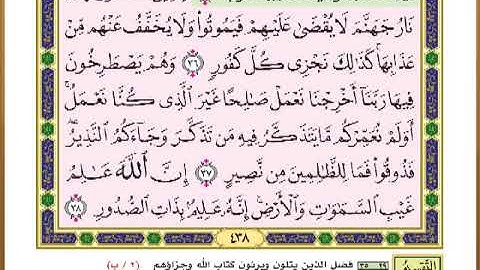 نَارُ جَهَنَّمَ لَا يُقْضَىٰ عَلَيْهِمْ فَيَمُوتُوا۟ وَلَا يُخَفَّفُ عَنْهُم مِّنْ
عَذَابِهَا ۚ كَذَٰلِكَ نَجْزِى كُلَّ كَفُورٍ ٣٦ وَهُمْ يَصْطَرِخُونَ
فِيهَا رَبَّنَآ أَخْرِجْنَا نَعْمَلْ صَٰلِحًا غَيْرَ ٱلَّذِى كُنَّا نَعْمَلُ ۚ
أَوَلَمْ نُعَمِّرْكُم مَّا يَتَذَكَّرُ فِيهِ مَن تَذَكَّرَ وَجَآءَكُمُ ٱلنَّذِيرُ ۖ
فَذُوقُوا۟ فَمَا لِلظَّٰلِمِينَ مِن نَّصِيرٍ ٣٧ إِنَّ ٱللَّهَ عَٰلِمُ
غَيْبِ ٱلسَّمَٰوَٰتِ وَٱلْأَرْضِ ۚ إِنَّهُۥ عَلِيمٌۢ بِذَاتِ ٱلصُّدُورِ ٣٨
٤٣٨
٢٩ ٣٥ فضل الذين يتلون ويرثون كتاب الله وجزاؤهم (٢ / ب)